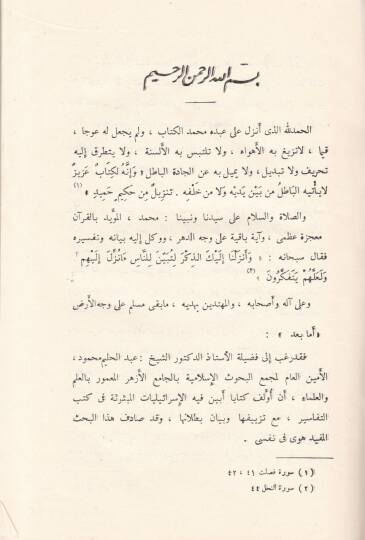 بسم الله الرحمن الرحيم
الحمدلله الذى أنزل على عبده محمد الكتاب ، ولم يجعل له عوجا ،
قيما ، لاتزيغ به الأهواء ، ولا تلتبس به الألسنة ، ولا يتطرق إليه
تحريف ولا تبديل ، ولا يميل به عن الجادة الباطل « وَإِنَّهُ لَكِتَابٌ عَزِيزٌ
لايأْتِيه الباَطلُ مِنْ بَيْنِ يَدَيْهِ وَلا مِن خَلْفِهِ . تنزِيلٌ مِن حَكِيمٍ حَمِيدٍ » (١)
والصلاة والسلام على سيدنا ونبينا : محمد ، المؤيد بالقرآن
معجزة عظمى ، وآية باقية على وجه الدهر ، ووكل إليه بيانه وتفسيره
فقال سبحانه : « وَأَنزَلْنَا إِلَيْكَ الذِّكْرَ لِتُبَيِّنَ لِلنَّاسِ مَانُزِّلَ إِلَيْهِم
وَلَعَلَّهُمْ يَتَفَكَّرُونَ » (٢)
وعلى آله وأصحابه ، والمهتدين بهديه ، مابقى مسلم على وجه الأرض
« أما بعد » :
فقدرغب إلى فضيلة الأستاذ الدكتور الشيخ : عبد الحليم محمود ،
الأمين العام لمجمع البحوث الإسلامية بالجامع الأزهر المعمور بالعلم
والعلماء ، أن أؤلف كتابا أبين فيه الإسرائيليات المبثوثة فى كتب
التفاسير ، مع تزييفها وبيان بطلانها ، وقد صادف هذا البحث
المفيد هوى فى نفسى .
(١) سورة فصلت ٤١ ، ٤٢
(٢) سورة النحل ٤٤